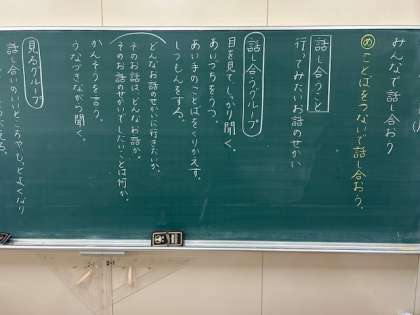 みんなで話し合おう
め ことばをつないで話し合おう。
話し合うこと
行ってみたいお話のせかい
話し合うグループ
目を見てしっかり聞く。
あいづちをうつ。
あい手のことばをくりかえす。
しつもんをする。
どんなお話のせかいに行きたいか。
そのお話は、どんなお話か。
そのお話のせかいでしたいことは何か。
かんそうを言う。
うなづきながら聞く。
見るグループ
話し合いのいいところや、もっとよくなり